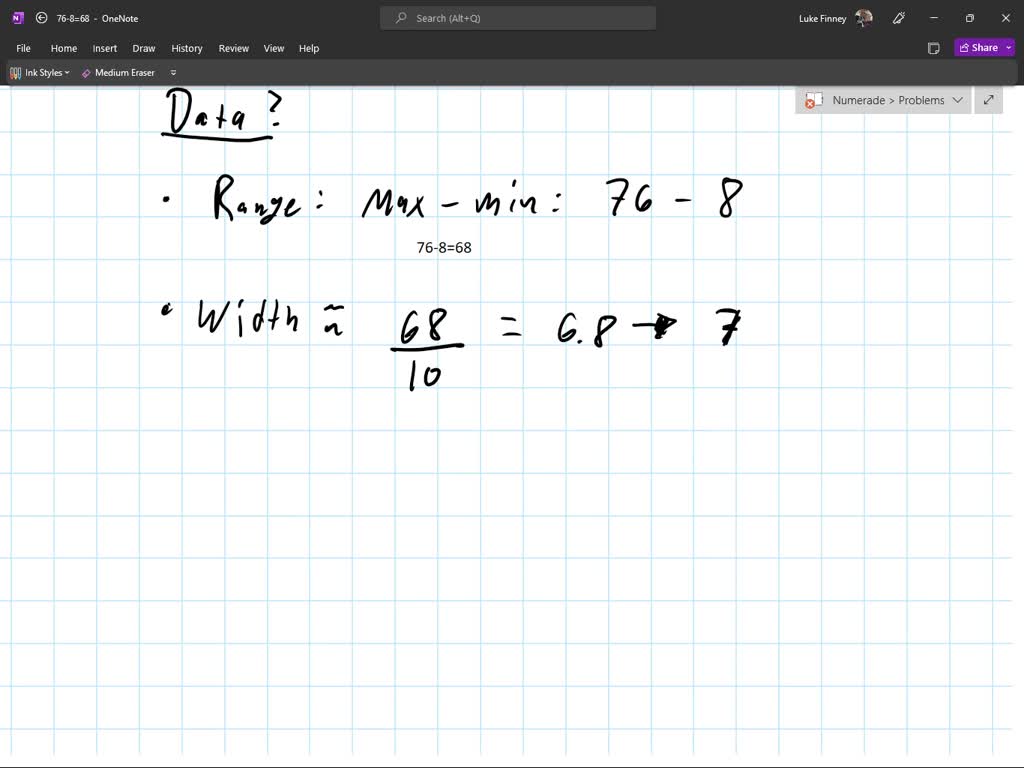 76-8=68 - OneNote
Search (Alt+Q)
Luke Finney
File Home Insert Draw History Review View Help
Share
Ink Styles
Medium Eraser
Numerade > Problems
Data?
• Range: Max - min: 76 - 8
76-8=68
• Width ≈ 68/10 = 6.8 → 7